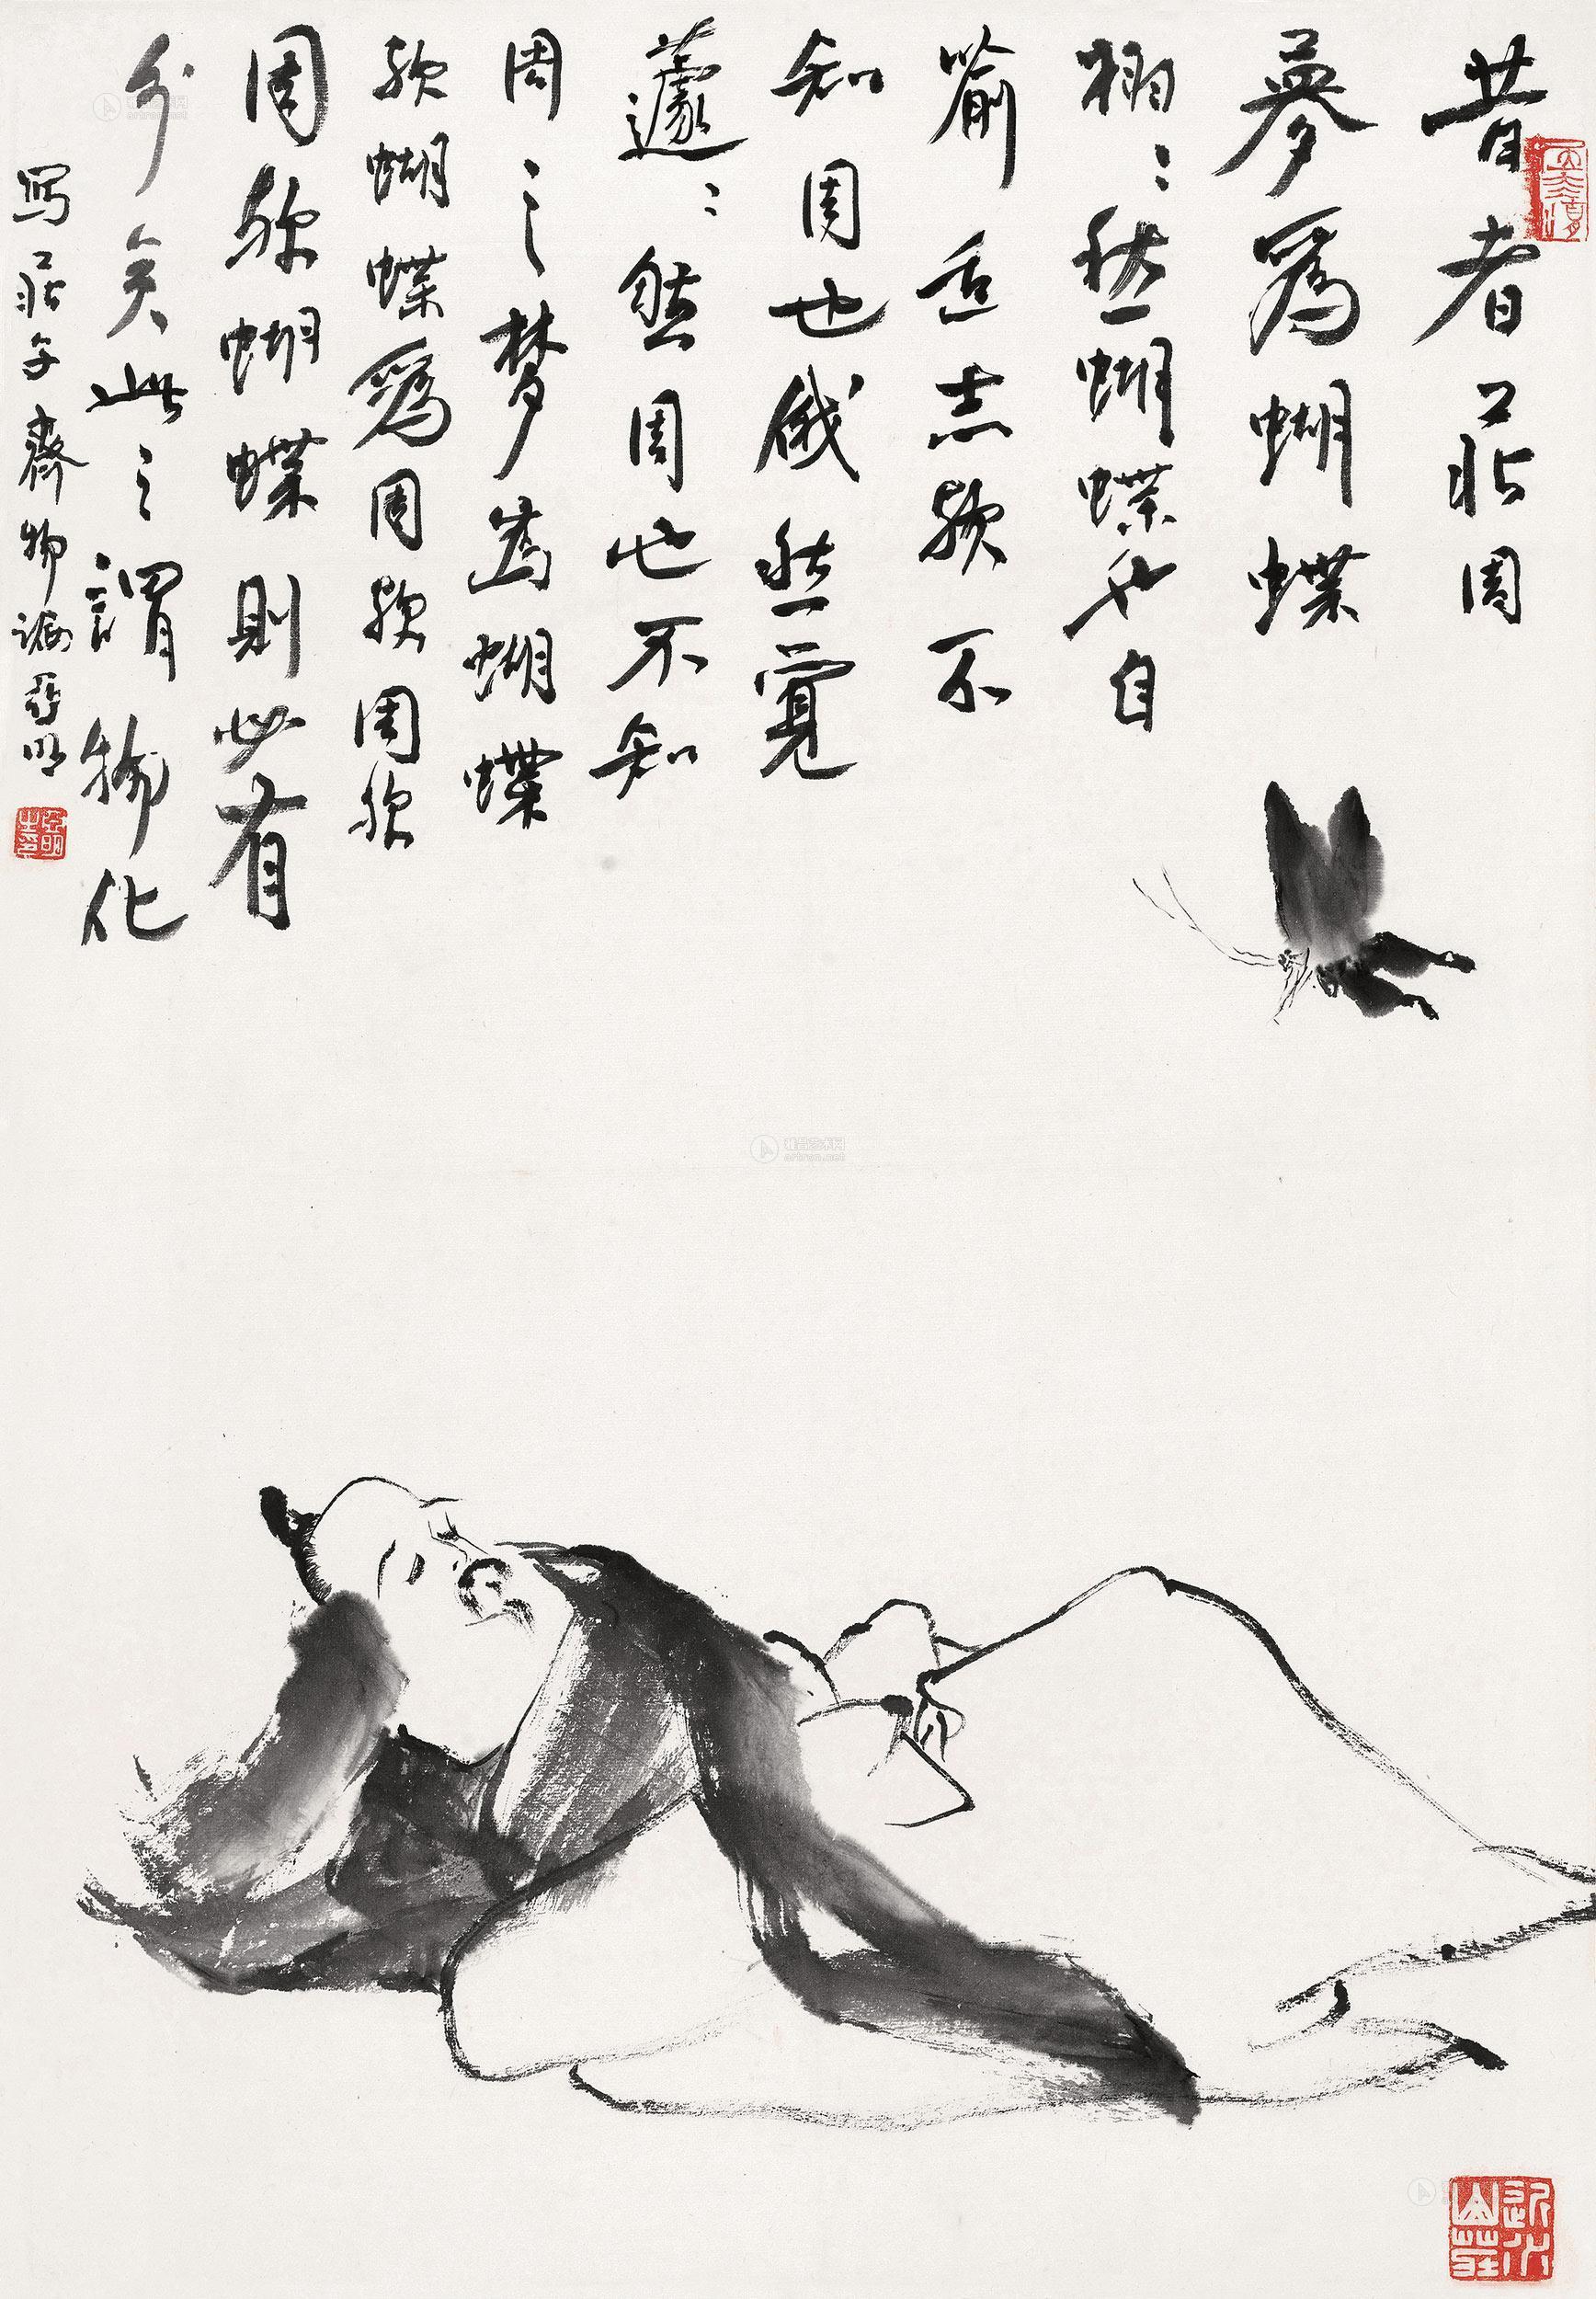 昔者莊周
夢為蝴蝶
栩〻然蝴蝶也自
喻適志歟不
知周也俄然覺
蘧〻然周也不知
周之梦為蝴蝶
歟蝴蝶為周歟周歟
周歟蝴蝶則必有
分矣此之謂物化
寫莊子齊物論亞明
亞明